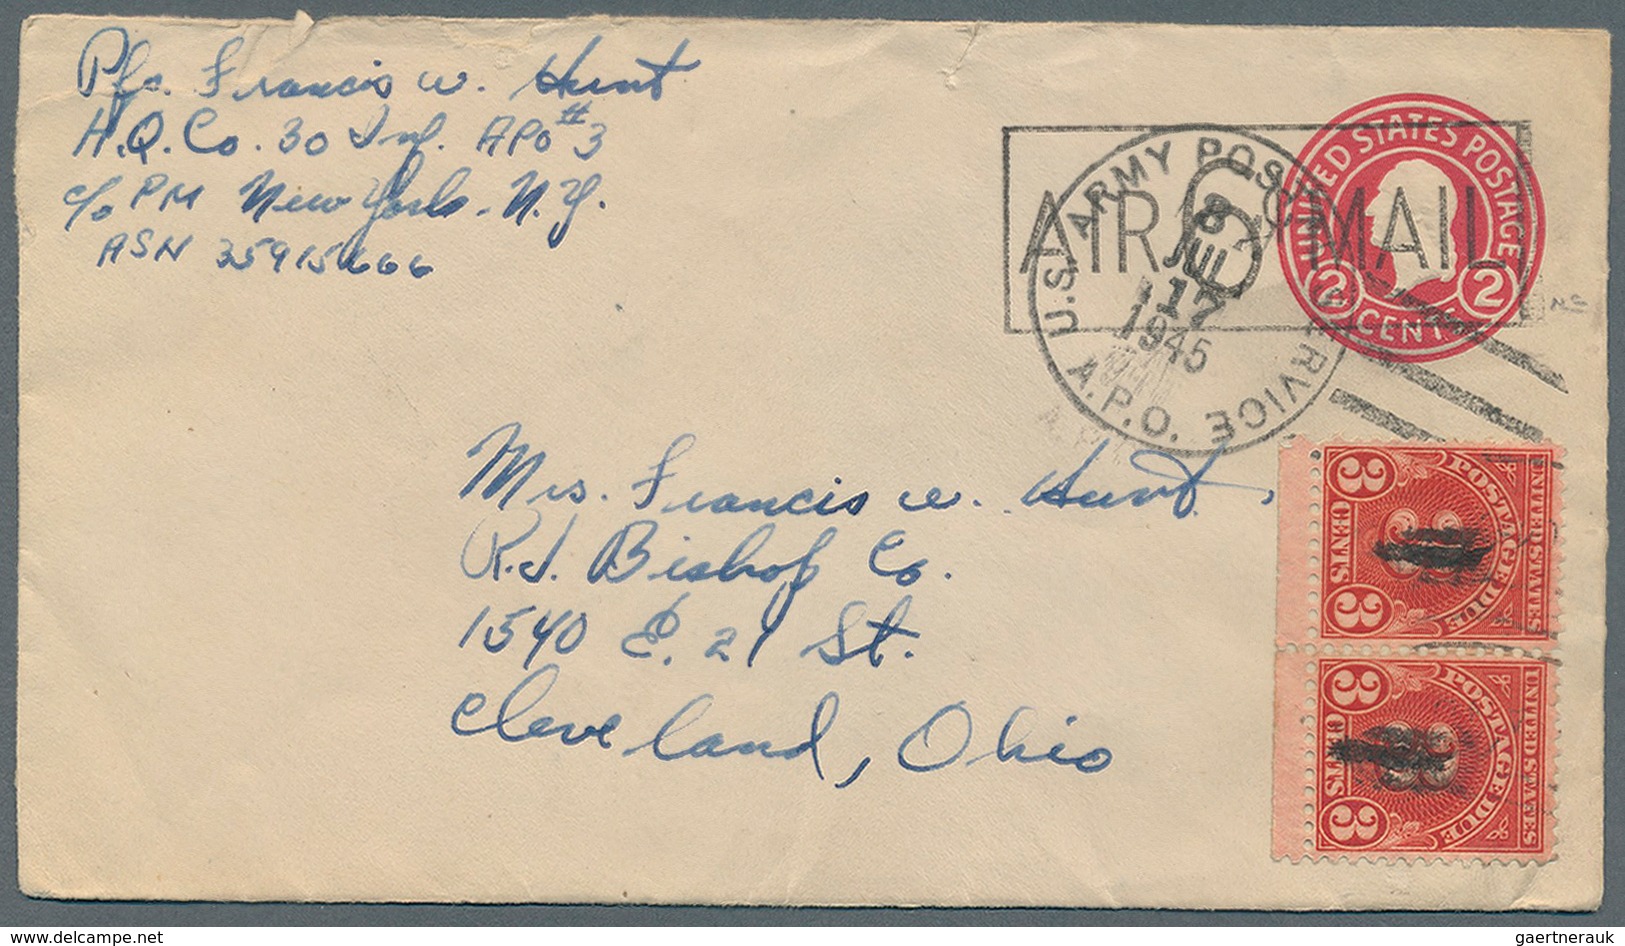 Pfc. Francis W. Hunt
H.Q. Co. 30 Inf. APO #3
c/o PM New York. N.Y.
ASN 35915666
UNITED STATES POSTAGE
2 CENTS 2
AIR MAIL
6
U.S. ARMY POSTAL SERVICE
A.P.O.
8
JUL
17
1945
Mrs. Francis W. Hunt
R.J. Bishop Co.
1540 E. 21 St.
Cleveland, Ohio
UNITED STATES
POSTAGE DUE
3 CENTS 3
UNITED STATES
POSTAGE DUE
3 CENTS 3
www.delcampe.net
gaertnerauk